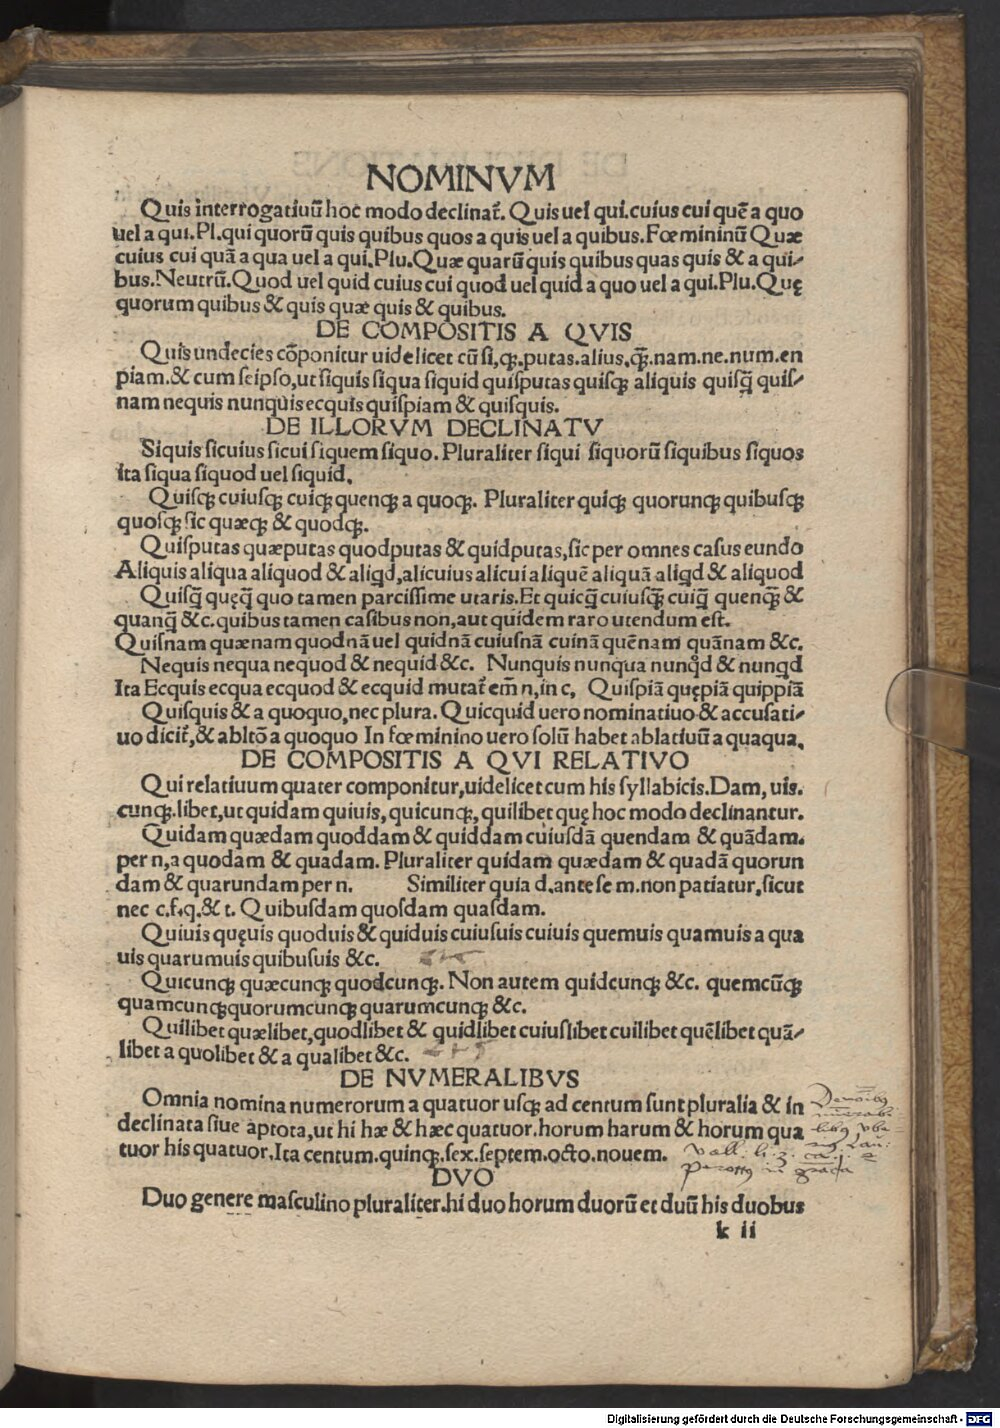 NOMINVM
Quis interrogatiuũ hoc modo declinat᷑. Quis uel qui.cuius cui quẽ a quo
uel a qui.Pl.qui quorũ quis quibus quos a quis uel a quibus.Fœmininũ Quæ
cuius cui quã a qua uel a qui.Plu.Quæ quarũ quis quibus quas quis & a qui⸗
bus.Neutrũ.Quod uel quid cuius cui quod uel quid a quo uel a qui.Plu.Quę
quorum quibus & quis quæ quis & quibus.
DE COMPOSITIS A QVIS
Quis undecies cõponitur uidelicet cũ si,qꝫ.putas.alius,qꝫ̃.nam.ne.num.en
piam.& cum seipso,ut siquis siqua siquid quisputas quisqꝫ aliquis quisq̃ quis⸗
nam nequis nunquis ecquis quispiam & quisquis.
DE ILLORVM DECLINATV
Siquis sicuius sicui siquem siquo. Pluraliter siqui siquorũ siquibus siquos
ita siqua siquod uel siquid.
Quisqꝫ cuiusqꝫ cuiqꝫ quenqꝫ a quoqꝫ. Pluraliter quiqꝫ quorunqꝫ quibusqꝫ
quosqꝫ sic quæqꝫ & quodqꝫ.
Quisputas quæputas quodputas & quidputas,sic per omnes casus eundo
Aliquis aliqua aliquod & aliqd,alicuius alicui aliquẽ aliquã aliqd & aliquod
Quisq̃ quęq̃ quo tamen parcissime utaris.Et quicq̃ cuiusqꝫ̃ cuiq̃ quenqꝫ̃ &
quanq̃ &c.quibus tamen casibus non,aut quidem raro utendum est.
Quisnam quænam quodnã uel quidnã cuiusnã cuinã quẽnam quãnam &c.
Nequis nequa nequod & nequid &c. Nunquis nunqua nunqd & nunqd
Ita Ecquis ecqua ecquod & ecquid mutat᷑ em̃ n,in c, Quispiã quępiã quippiã
Quisquis & a quoquo,nec plura. Quicquid uero nominatiuo & accusati⸗
uo dicit᷑,& abltõ a quoquo In fœminino uero solũ habet ablatiuũ a quaqua.
DE COMPOSITIS A QVI RELATIVO
Qui relatiuum quater componitur,uidelicet cum his syllabicis.Dam, uis.
cunqꝫ.libet,ut quidam quiuis, quicunqꝫ, quilibet quę hoc modo declinantur.
Quidam quædam quoddam & quiddam cuiusdã quendam & quãdam.
per n,a quodam & quadam. Pluraliter quidam quædam & quadã quorun
dam & quarundam per n. Similiter quia d,ante se m.non patiatur,sicut
nec c.f.q.& t. Quibusdam quosdam quasdam.
Quiuis quęuis quoduis & quiduis cuiusuis cuiuis quemuis quamuis a qua
uis quarumuis quibusuis &c.
Quicunqꝫ quæcunqꝫ quodcunqꝫ. Non autem quidcunqꝫ &c. quemcũqꝫ
quamcunqꝫ quorumcunqꝫ quarumcunqꝫ &c.
Quilibet quælibet,quodlibet & quidlibet cuiuslibet cuilibet quẽlibet quã⸗
libet a quolibet & a qualibet &c.
DE NVMERALIBVS
Omnia nomina numerorum a quatuor usqꝫ ad centum sunt pluralia & in
declinata siue aptota,ut hi hæ & hæc quatuor.horum harum & horum qua
tuor his quatuor.Ita centum.quinqꝫ.sex.septem.octo.nouem.
DVO
Duo genere masculino pluraliter.hi duo horum duorũ et duũ his duobus
k ii
Digitalisierung gefördert durch die Deutsche Forschungsgemeinschaft - DFG